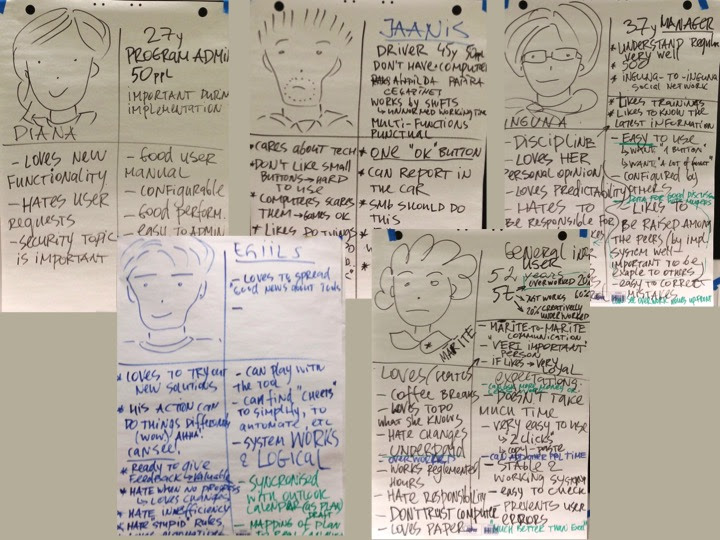 27y
PROGRAM ADMIN
50ppl
IMPORTANT DURIN
IMPLEMENTATION
DIANA
- LOVES NEW
FUNCTIONALITY
- HATES USER
REQUESTS
- SECURITY TOPIC
IS IMPORTANT
- GOOD USER
MANUAL
- CONFIGURABLE
- GOOD PERFORM.
- EASY TO ADMIN
JAANIS
DRIVER 45y 50ppl
DON'T HAVE COMPUTER
PAPIRA
WORKS BY SHIFTS
↳ UNNORMED WORKING TIME
MULTI-FUNCTIONS
PUNCTUAL
* CARES ABOUT TECH
* DON'T LIKE SMALL
BUTTONS → HARD
TO USE
* COMPUTERS SCARES
THEM → GAMES OK
* LIKES DO THINGS
* ONE "OK" BUTTON
* CAN REPORT IN
THE CAR
* SMB SHOULD DO
THIS
37y MANAGER
* UNDERSTAND REGULE
VERY WELL
* 500
* INGUNA-TO-INGUNA
SOCIAL NETWORK
* LIKES TRAININGS
* LIKES TO KNOW THE
LATEST INFORMATION
INGUNA
- DISCIPLINE
- LOVES HER
PERSONAL OPINION
- LOVES PREDICTABILITY
- HATES TO
BE RESPONSIBLE FOR
- EASY TO USE
↳ WANT "1 BUTTON"
↳ WANT "A LOT OF POWER"
- CONFIGURED BY
OTHERS
- LIKES TO
BE RAISED AMONG
THE PEERS (BY IMPL.
SYSTEM WELL
- IMPORTANT TO BE
EXAPLE TO OTHERS
- EASY TO CORRECT
MISTAKES
EGIILS
- LOVES TO SPREAD
GOOD NEWS ABOUT TOOL
-
* LOVES TO TRY OUT
NEW SOLUTIONS
* HIS ACTION CAN
DO THINGS DIFFERENTLY
(WOW) AHHA.
CAN SEE!
* READY TO GIVE
FEEDBACK → VALUABLE
* HATE WHEN NO PROGRESS
↳ LOVES CHANGES
* HATE INEFFICIENCY
* HATE "STUPID" RULES
- CAN PLAY WITH
THE TOOL
- CAN FIND "CHEETS"
TO SIMPLIFY, TO
AUTOMATE, ETC
- SYSTEM WORKS
& LOGICAL
- SYNCRONISED
WITH OUTLOOK
CALENDAR (AS PLAN)
DRAFT
- MAPPING OF PLAN
GENERAL
USER
52 YEARS
OVERWORKED 20%
JUST WORKS 60%
20% CREATIVELY
UNDERWORKED
MARITE
- MARITE-TO-MARITE
COMMUNICATION
- "VERI IMPORTANT
PERSON
- IF LIKES → VERY
LOYAL
LOVES/HATES
- COFFEE BREAKS
- LOVES TO DO
WHAT SHE KNOWS
- HATE CHANGES
- UNDERPAID
OVERWORKED
- WORKS REGLEMENTED
HOURS
- HATE RESPONSIBILITY
- DON'T TRUST COMPUTER
- LOVES PAPER
EXPECTATIONS:
- DOESN'T TAKE
MUCH TIME
- VERY EASY TO USE
↳ "2 CLICKS"
↳ COPY-PASTE
- STABLE &
WORKING SYSTEM
- EASY TO CHECK
- PREVENTS USER
ERRORS
"MUCH BETTER THAN EXCEL"